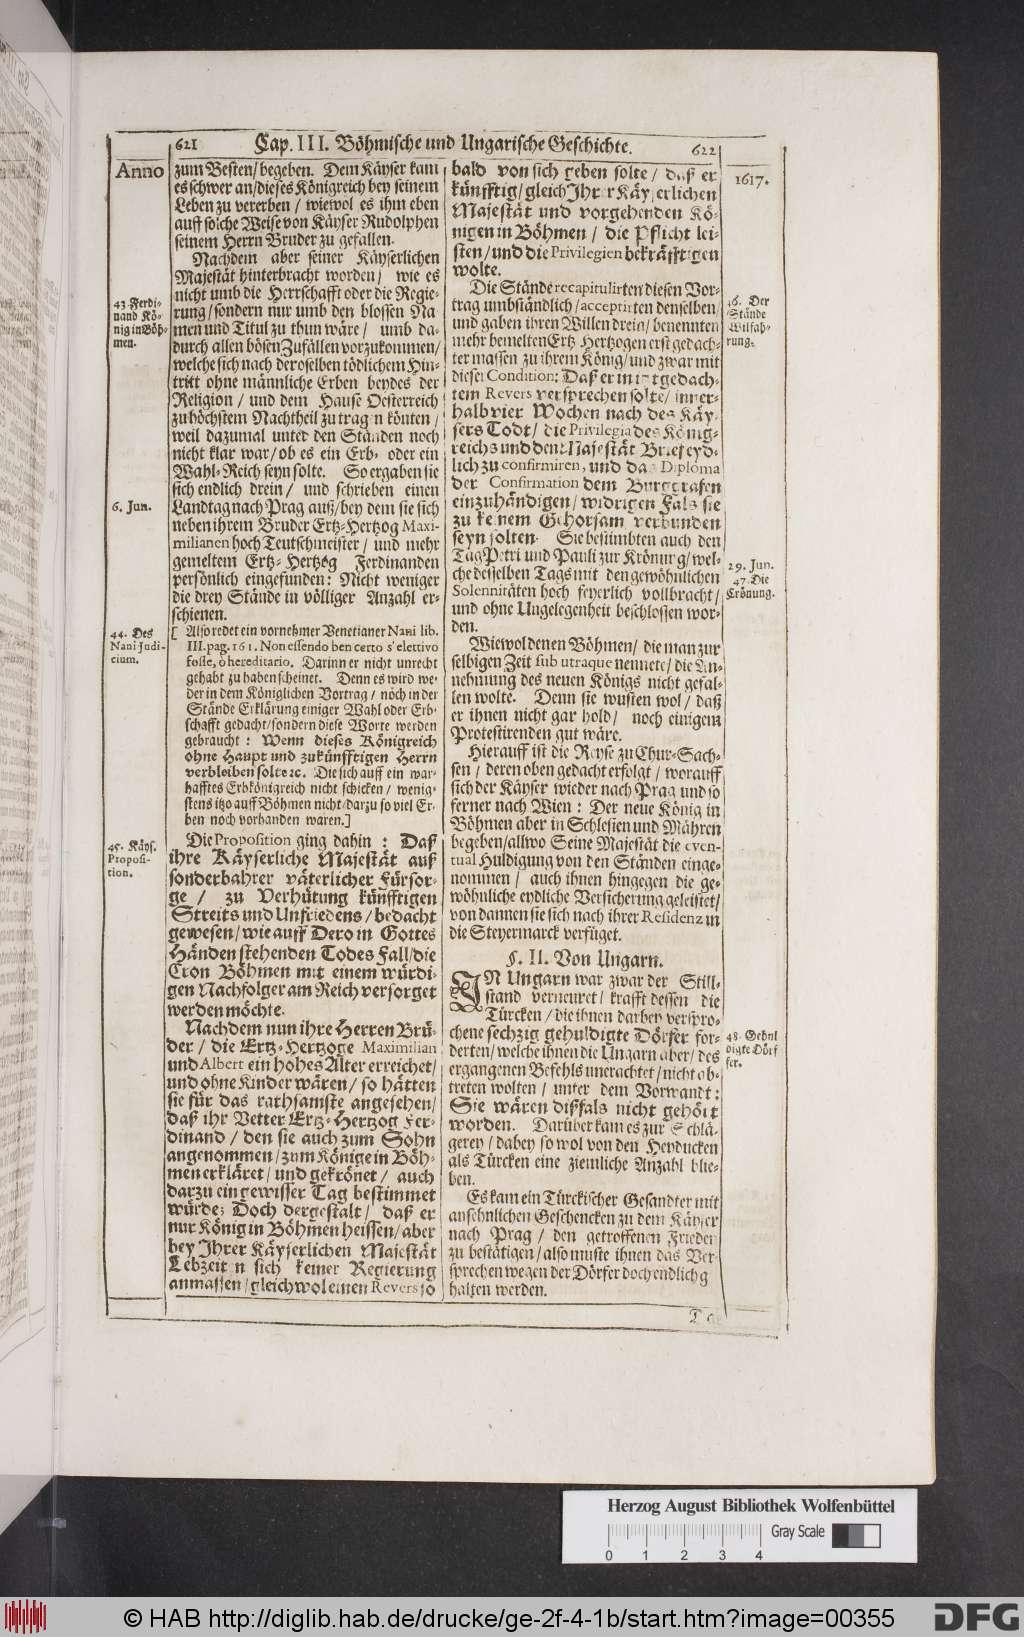 621 Cap. III. Böhmische und Ungarische Geschichte. 622
Anno
zum Besten/ begeben. Dem Käyser kam
es schwer an/ dieses Königreich bey seinem
Leben zu vererben / wiewol es ihm eben
auff solche Weise von Käyser Rudolphen
seinem Herrn Bruder zu gefallen.
Nachdem aber seiner Käyserlichen
Majestät hinterbracht worden/ wie es
nicht umb die Herrschafft oder die Regie-
rung/ sondern nur umb den blossen Na
men und Titul zu thun wäre / umb da-
durch allen bösen Zufällen vorzukommen/
welche sich nach deroselben tödlichem Hin-
tritt ohne männliche Erben beydes der
Religion / und dem Hause Oesterreich
zu höchstem Nachtheil zu tragen könten /
weil dazumal unter den Ständen noch
nicht klar war/ ob es ein Erb- oder ein
Wahl-Reich seyn solte. So ergaben sie
sich endlich drein / und schrieben einen
Landtag nach Prag auß/ bey dem sie sich
neben ihrem Bruder Ertz-Hertzog Maxi-
milianen hoch Teutschmeister / und mehr
gemeltem Ertz-Hertzog Ferdinanden
persönlich eingefunden: Nicht weniger
die drey Stände in völliger Anzahl er-
schienen.
[ Also redet ein vornehmer Venetianer Nani lib.
III. pag. 161. Non essendo ben certo s' elettivo
fosse, ò hereditario. Darinn er nicht unrecht
gehabt zu haben scheinet. Denn es wird we-
der in dem Königlichen Vortrag / noch in der
Stände Erklärung einiger Wahl oder Erb-
schafft gedacht/ sondern diese Worte werden
gebraucht: Wenn dieses Königreich
ohne Haupt und zukünfftigen Herrn
verbleiben solte ec. Die sich auff ein war-
hafftes Erbkönigreich nicht schicken / wenig-
stens itzo auff Böhmen nicht/ darzu so viel Er-
ben noch vorhanden waren.]
Die Proposition ging dahin: Daß
ihre Käyserliche Majestät auß
sonderbahrer väterlicher Fürsor-
ge / zu Verhütung künfftigen
Streits und Unfriedens / bedacht
gewesen/ wie auff Dero in Gottes
Händen stehenden Todes Fall/ die
Cron Böhmen mit einem würdi-
gen Nachfolger am Reich versorget
werden möchte.
Nachdem nun ihre Herren Brü-
der / die Ertz-Hertzoge Maximilian
und Albert ein hohes Alter erreichet/
und ohne Kinder wären/ so hätten
sie für das rathsamste angesehen/
daß ihr Vetter Ertz-Hertzog Fer-
dinand / den sie auch zum Sohn
angenommen/ zum Könige in Böh-
men erkläret/ und gekrönet / auch
darzu ein gewisser Tag bestimmet
würde; Doch dergestalt/ daß er
nur König in Böhmen heissen/ aber
bey Ihrer Käyserlichen Majestät
Lebzeiten sich keiner Regierung
anmassen/ gleichwol einen Revers so
43. Ferdi-
nand Kö-
nig in Böh-
men.
6. Jun.
44. Des
Nani Judi-
cium.
45. Käys.
Proposi-
tion.
bald von sich geben solte / daß er
künfftig/ gleich Ihrer Käyserlichen
Majestät und vorgehenden Kö-
nigen in Böhmen / die Pflicht lei-
sten/ und die Privilegien bekräfftigen
wolte.
Die Stände recapitulirten diesen Vor-
trag umbständlich/ acceptirten denselben/
und gaben ihren Willen drein/ benennten
mehr bemelten Ertz Hertzogen erst gedach-
ter massen zu ihrem König/ und zwar mit
dieser Condition: Daß er in itztgedach-
tem Revers versprechen solte/ inner-
halb vier Wochen nach des Käy-
sers Todt/ die Privilegia des König-
reichs und den Majestät Brief eyd-
lich zu confirmiren, und das Diploma
der Confirmation dem Burggrafen
einzuhändigen/ widrigen Fals sie
zu keinem Gehorsam verbunden
seyn solten. Sie bestimbten auch den
Tag Petri und Pauli zur Krönung/ wel-
che desselben Tags mit den gewöhnlichen
Solennitäten hoch feyerlich vollbracht/
und ohne Ungelegenheit beschlossen wor-
den.
Wiewol denen Böhmen/ die man zur
selbigen Zeit sub utraque nennete/ die An-
nehmung des neuen Königs nicht gefal-
len wolte. Denn sie wusten wol / daß
er ihnen nicht gar hold/ noch einigem
Protestirenden gut wäre.
Hierauff ist die Reyse zu Chur-Sach-
sen / deren oben gedacht erfolgt / worauff
sich der Käyser wieder nach Prag und so
ferner nach Wien: Der neue König in
Böhmen aber in Schlesien und Mähren
begeben/ allwo Seine Majestät die even-
tual Huldigung von den Ständen einge-
nommen / auch ihnen hingegen die ge-
wöhnliche eydliche Versicherung geleistet/
von dannen sie sich nach ihrer Residenz in
die Steyermarck verfüget.
§. II. Von Ungarn.
IN Ungarn war zwar der Still-
stand verneuret/ krafft dessen die
Türcken / die ihnen darbey verspro-
chene sechzig gehuldigte Dörfer for-
derten/ welche ihnen die Ungarn aber/ des
ergangenen Befehls unerachtet / nicht ab-
tretten wolten / unter dem Vorwandt:
Sie wären dißfals nicht gehört
worden. Darüber kam es zur Schlä-
gerey / dabey so wol von den Heyducken
als Türcken eine ziemliche Anzahl blie-
ben.
Es kam ein Türckischer Gesandter mit
ansehnlichen Geschencken zu dem Käyser
nach Prag / den getroffenen Frieden
zu bestätigen/ also muste ihnen das Ver-
sprechen wegen der Dörfer doch endlich g
halten werden.
1617.
46. Der
Stände
Wilfah-
rung.
29. Jun.
47. Die
Crönung.
48. Gehul
digte Dörf
fer.
Herzog August Bibliothek Wolfenbüttel
Gray Scale
0 1 2 3 4
© HAB http://diglib.hab.de/drucke/ge-2f-4-1b/start.htm?image=00355
DFG